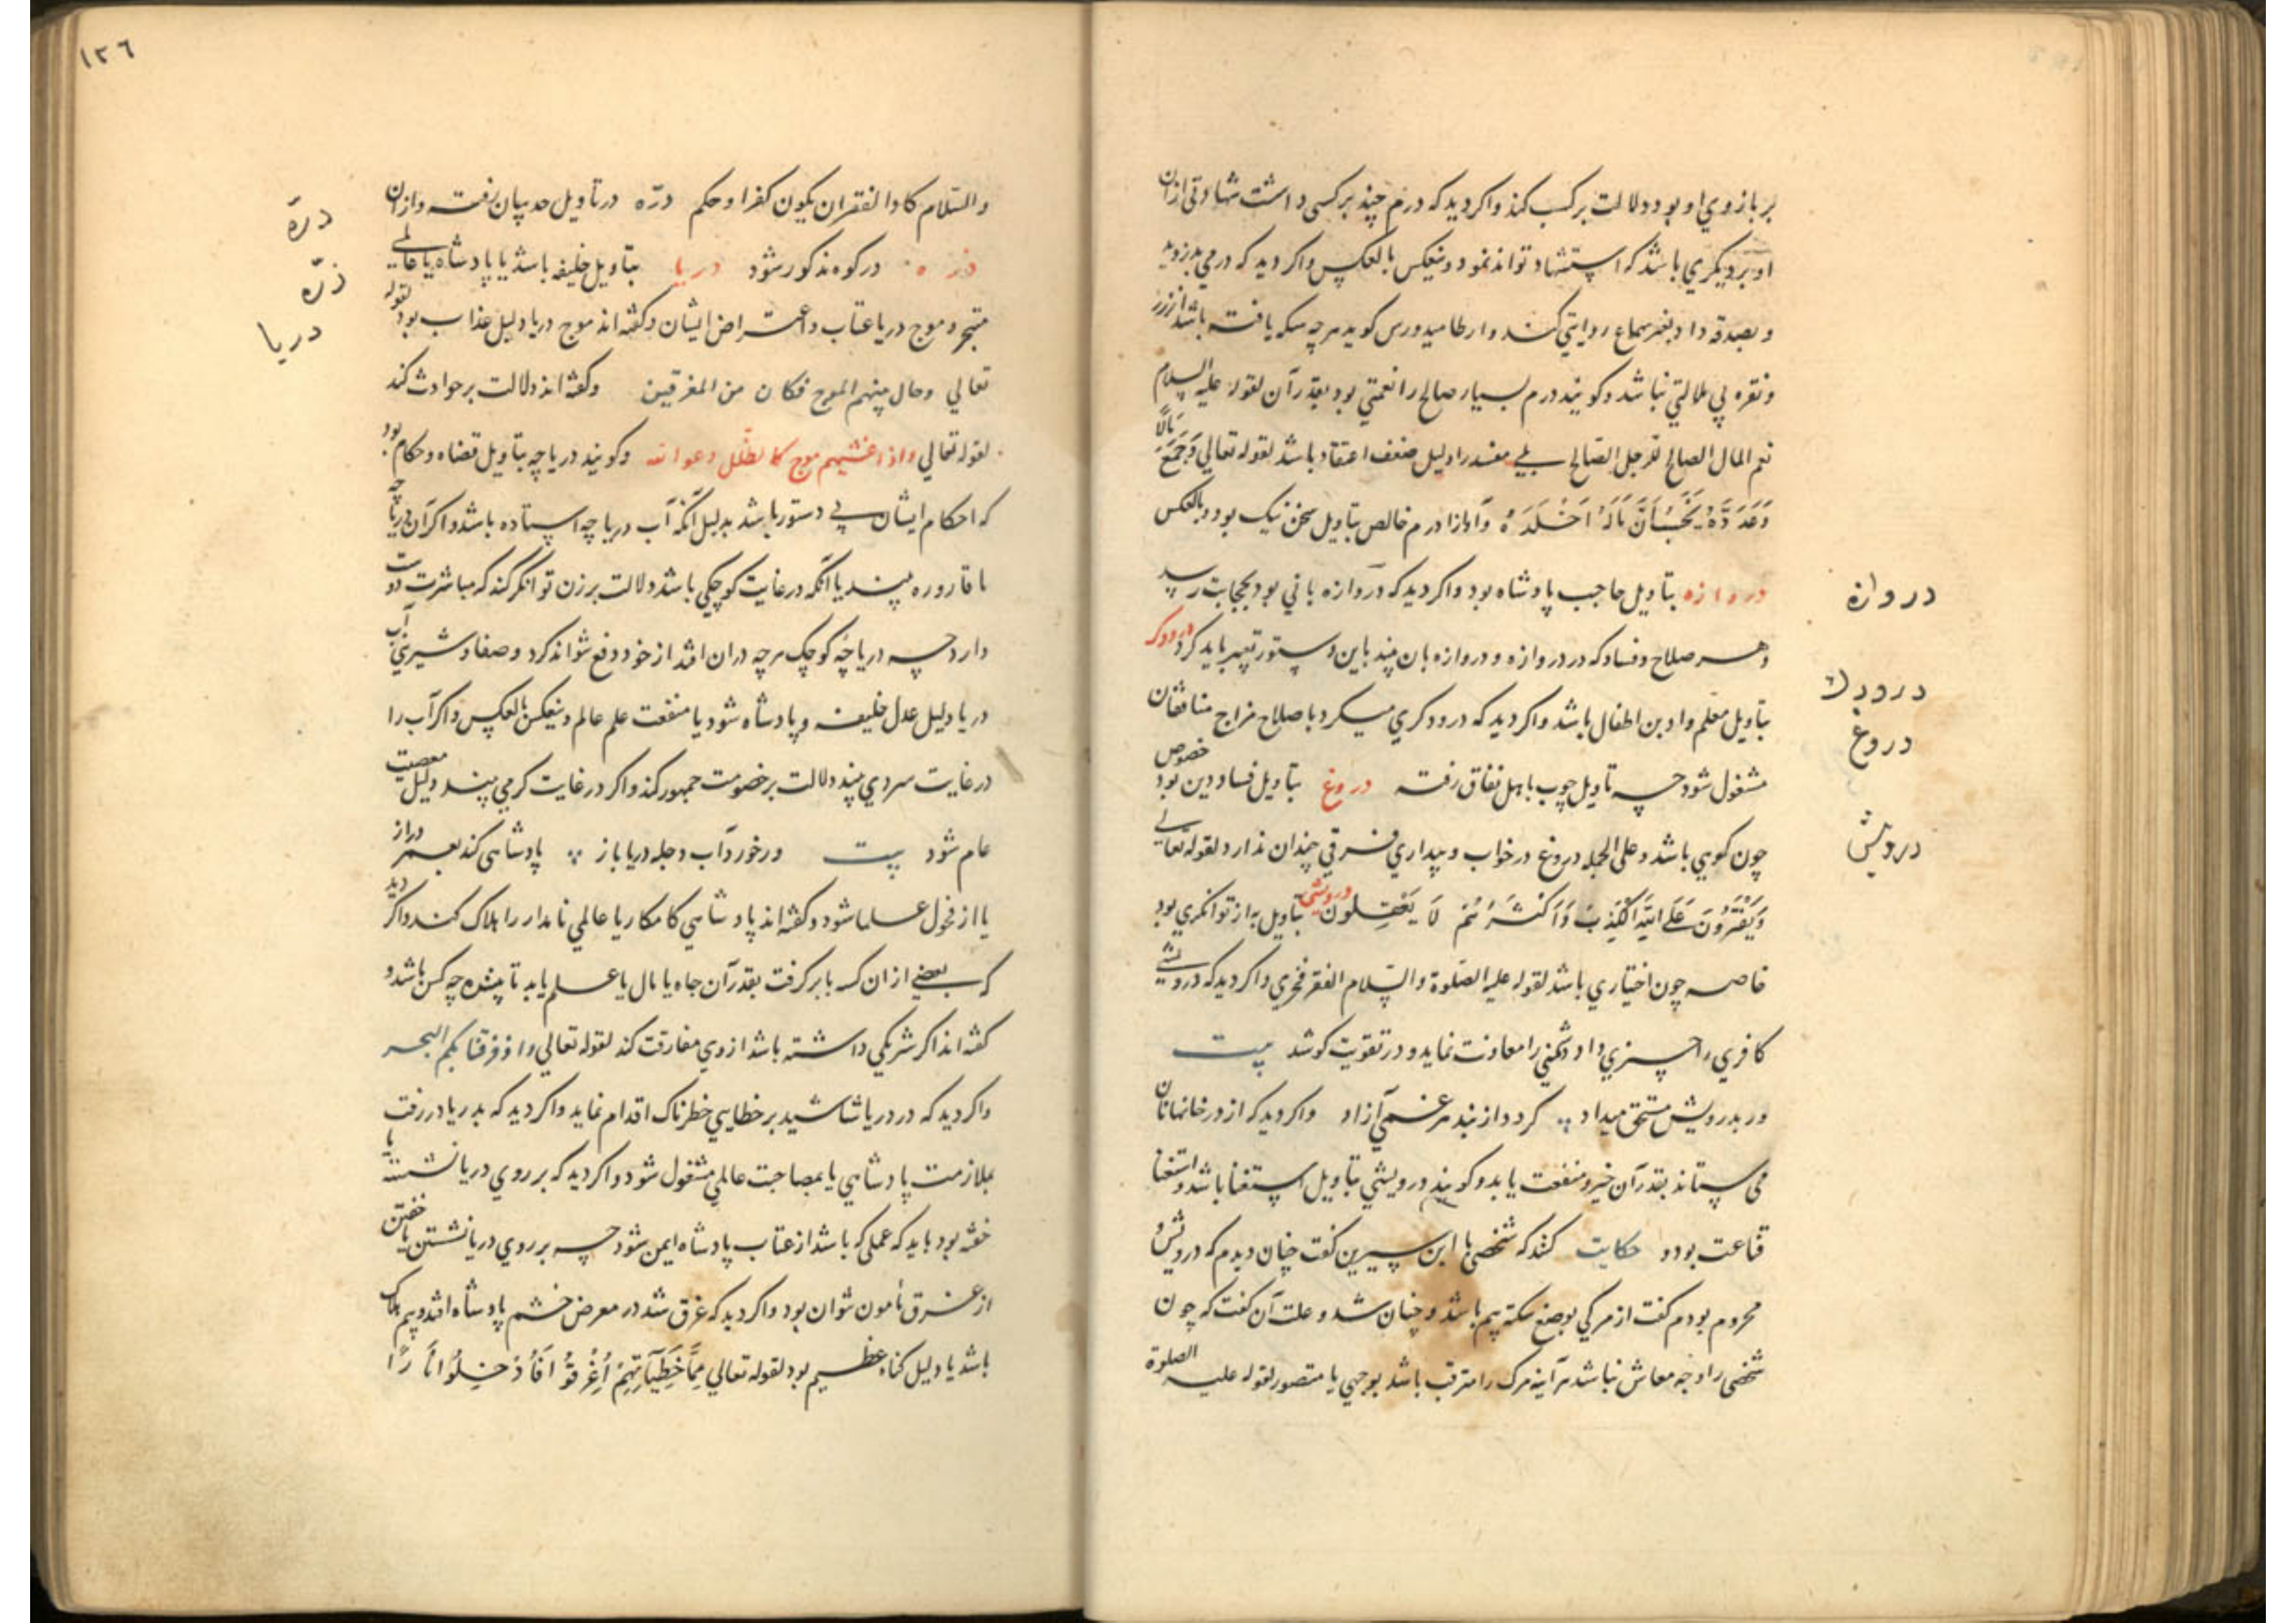 بر بازوي او بود دلالت بر كسب كند واكر ديد كه درم چند بر كسى داشت شهادتى ازان
او بر ديكري باشد كه استشهاد تواند نمود ومنعكس بالعكس واكر ديد كه درمي بدزديد
و بصدقه داد بغير سماع روايتي كند كويد هر چه سكه يافته باشد از زر
ونقره بي ملالتي نباشد وكويند درم بسيار صالح را نعمتي بود بقدر آن لقوله عليه السلام
نعم المال الصالح للرجل الصالح بلي مفسد را دليل ضعف اعتقاد باشد لقوله تعالي وَجَمَعَ مَالًا
وَعَدَّدَهُ يَحْسَبُ أَنَّ مَالَهُ أَخْلَدَهُ وآواز درم خالص بتاويل سخن نيك بود وبالعكس
دروازه بتاويل حاجب پادشاه بود واكر ديد كه دروازه باني بود بحجابت رسد
وهر صلاح وفساد كه در دروازه ودروازه بان بيند باين دستور تعبير بايد كرد درودكر
بتاويل معلم وادبن اطفال باشد واكر ديد كه درودكري ميكرد باصلاح مزاج منافقان
مشغول شود چه تاويل چوب باهل نفاق رفته دروغ بتاويل فساد دين بود خصوص
چون كوهي باشد وعلى الجمله دروغ در خواب وبيداري فرقي چندان ندارد لقوله تعالي
وَيَفْتَرُونَ عَلَى اللَّهِ الْكَذِبَ وَأَكْثَرُهُمْ لَا يَعْقِلُونَ درويشى بتاويل به از توانكري بود
خاصه چون اختياري باشد لقوله عليه الصلوة والسلام الفقر فخري واكر ديد كه درويشي
كافري را چيزي داد دشمني را معاونت نمايد ودر تقويت كوشد بيت
ور بدرويش مستحق ميداد كردد از بند هر غمي آزاد واكر ديد كه از در خانها نان
مى ستاند بقدر آن خير ومنفعت يابد وكويند درويشي بتاويل استغنا باشد واستغنا
قناعت بود و حكايت كنند كه شخصى با ابن سيرين كفت چنان ديدم كه درويش و
محروم بودم كفت از مركي باشد وچنان شد وعلت آن كفت كه چون
شخصى را وجه معاش نباشد هر آينه مرك را مترقب باشد بوجهي يا متصور لقوله عليه الصلوة
دروازه
درودكر
دروغ
درويش
١٣٦
والسلام كاد الفقر ان يكون كفرا وحكم درّه در تاويل حد بيان رفته وازان
ذره در كوه مذكور شود دريا بتاويل خليفه باشد يا پادشاه يا عالمي
متبحر وموج دريا عتاب واعتراض ايشان وكفته اند موج دريا دليل عذاب بود لقوله
تعالي وحال بينهم الموج فكان من المغرقين وكفته اند دلالت بر حوادث كند
لقوله تعالي واذا غشيهم موج كالظلل دعوا الله وكويند درياچه بتاويل قضاه وحكام بود
كه احكام ايشان بي دستور باشد بدليل آنكه آب درياچه استاده باشد واكر آن درياچه
با قاروره بيند يا آنكه در غايت كوچكي باشد دلالت بر زن توانكر كند كه مباشرت دوست
دارد چه درياچهٔ كوچك هر چه دران افتد از خود دفع نتواند كرد وصفا وشيريني آب
دريا دليل عدل خليفه وپادشاه شود يا منفعت علم عالم ومنعكس بالعكس واكر آب را
در غايت سردي بيند دلالت بر خصومت جمهور كند واكر در غايت كرمي بيند دليل معصيت
عام شود بيت ور خورد آب دجله دريا باز پادشاهى كند بعمر دراز
يا از فحول علما شود وكفته اند پادشاهي كامكار يا عالمي نامدار را هلاك كند واكر ديد
كه بعضي ازان كه باز كرفت بقدر آن جاه يا مال يا علم يابد تا بيننده چه كس باشد و
كفته اند اكر شريكي داشته باشد از وي مفارقت كند لقوله تعالي واذ فرقنا بكم البحر
واكر ديد كه در دريا شاشيد بر خطايي خطرناك اقدام نمايد واكر ديد كه بدريا در رفت
بملازمت پادشاهي يا بمصاحبت عالمي مشغول شود واكر ديد كه بر روي دريا نشسته يا
خفته بود بايد كه عملى كه باشد از عتاب پادشاه ايمن شود چه بر روي دريا نشستن يا خفتن
از غرق مأمون نتوان بود واكر ديد كه غرق شد در معرض خشم پادشاه افتد وبيم هلاك
باشد يا دليل كناه عظيم بود لقوله تعالي مِمَّا خَطِيئَاتِهِمْ أُغْرِقُوا فَأُدْخِلُوا نَارًا
درّه
ذرّه
دريا